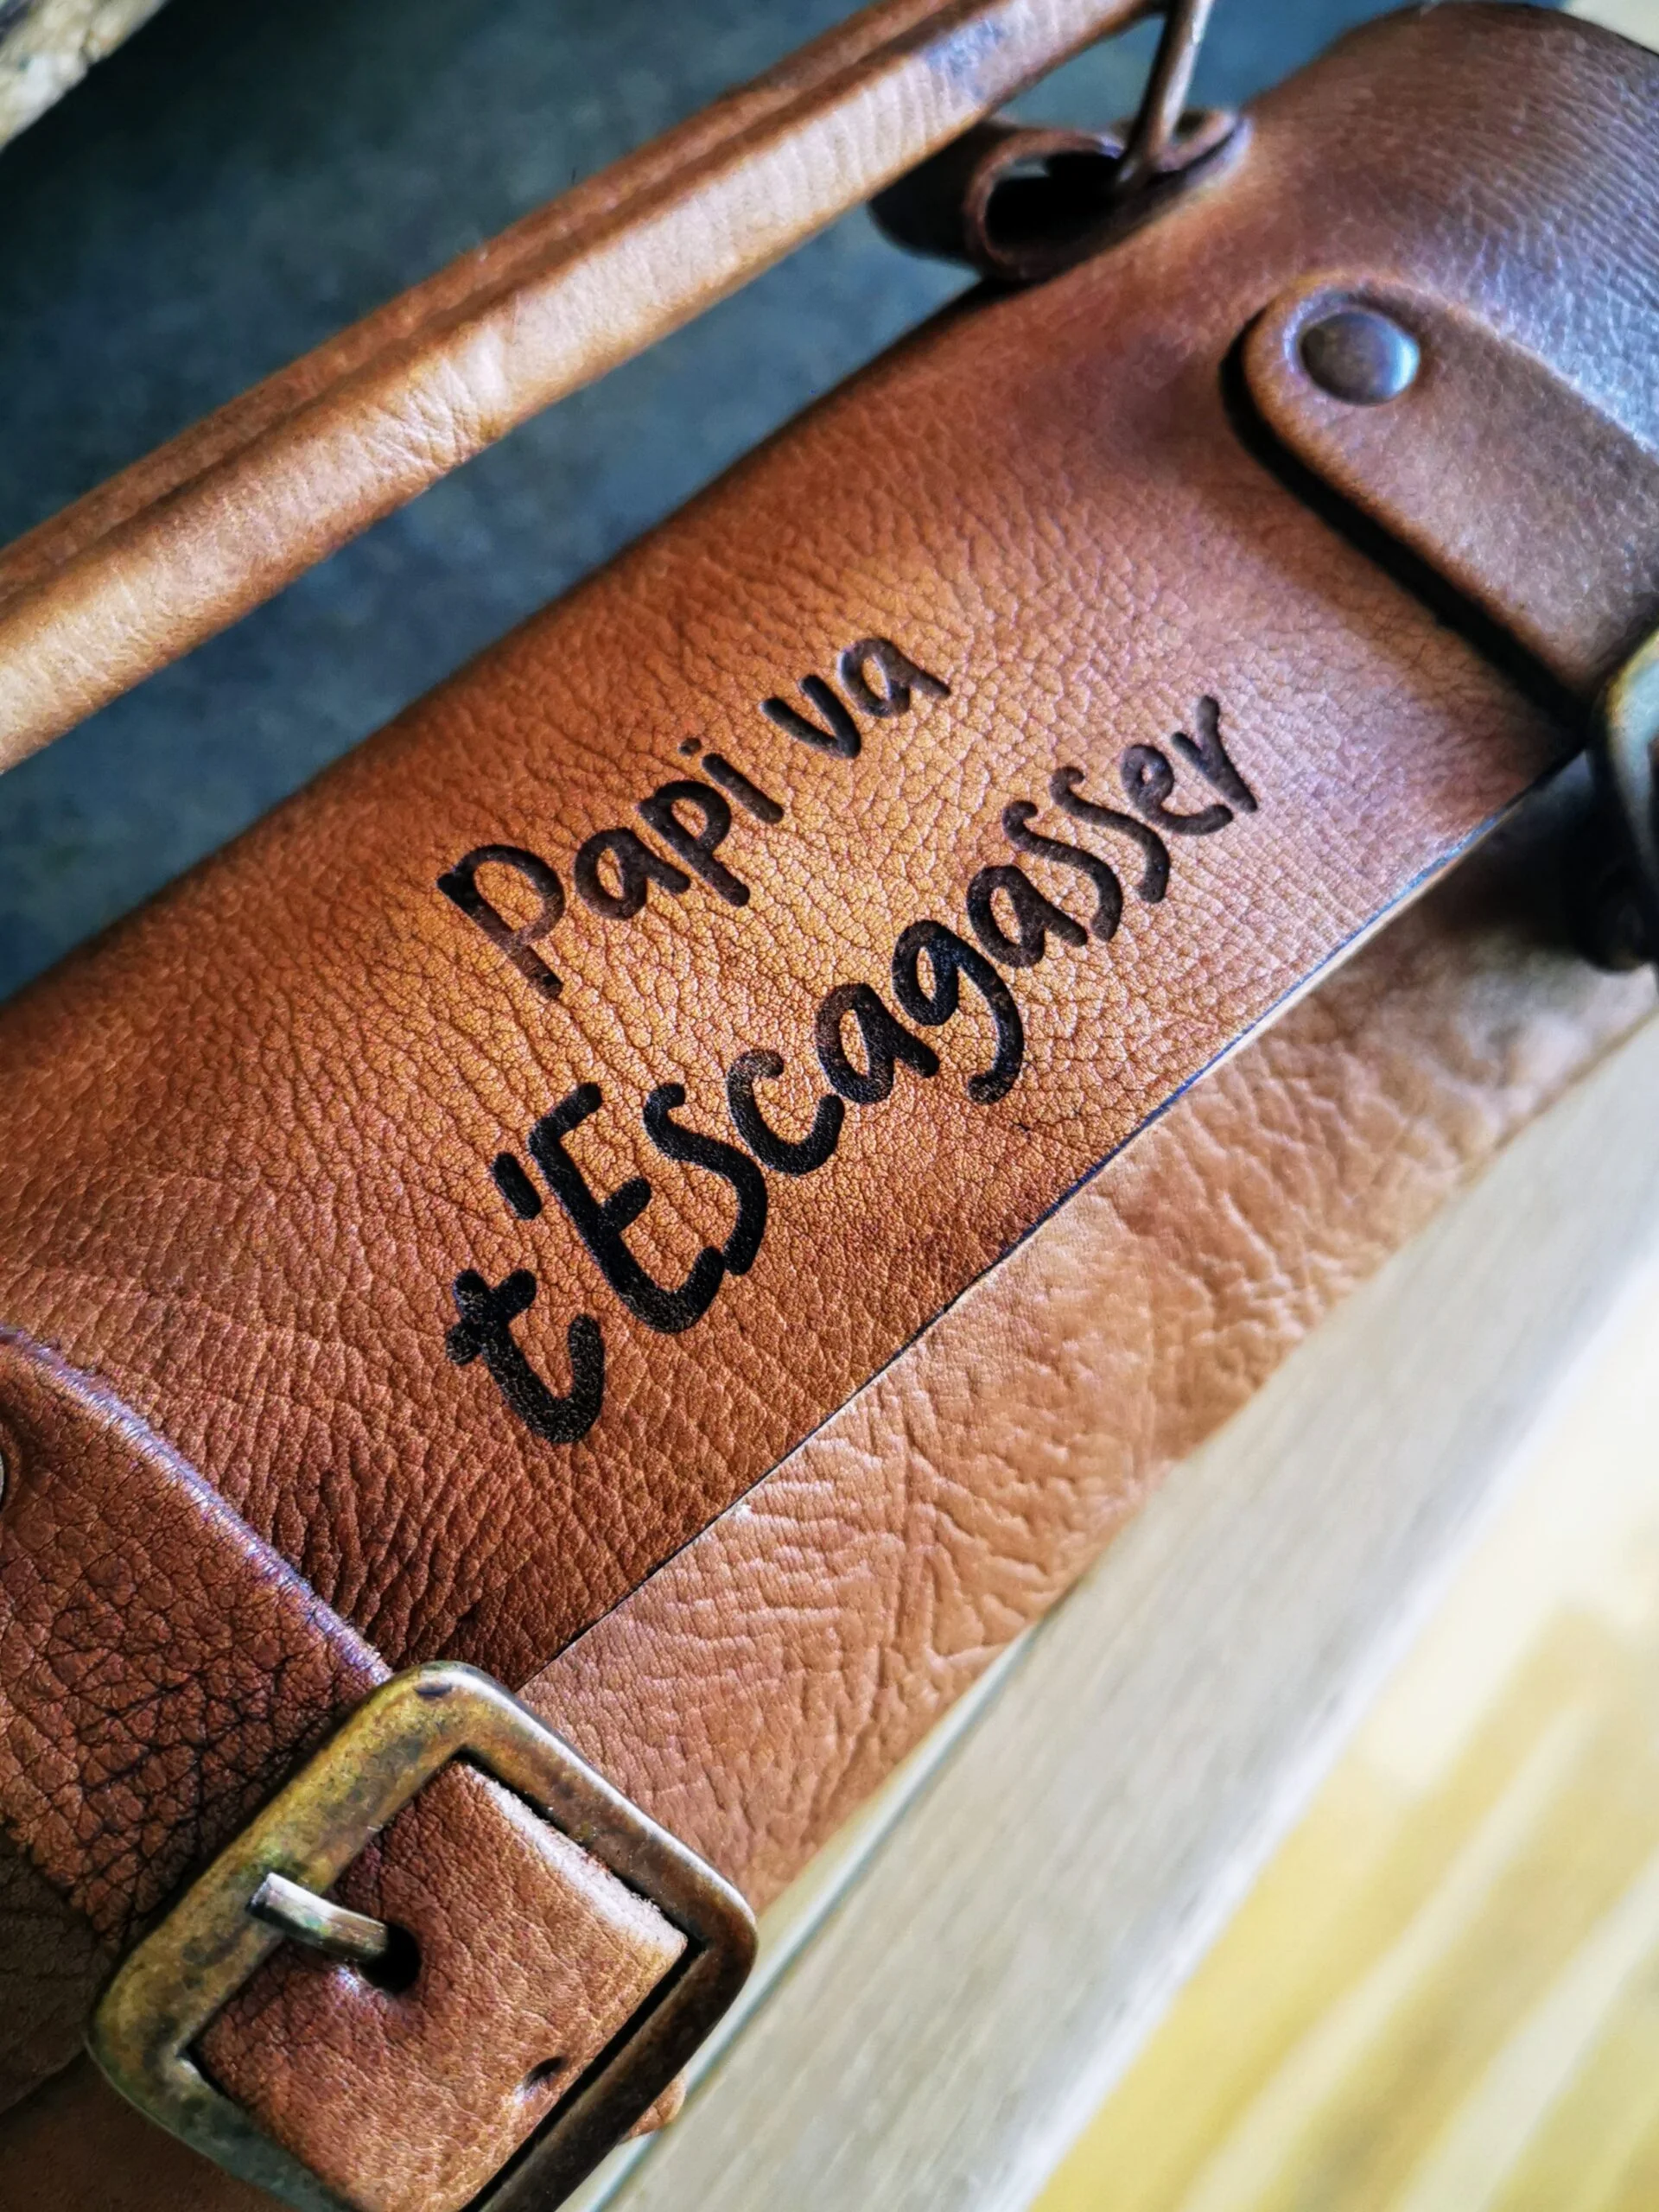 Papi va
t'Escagasser